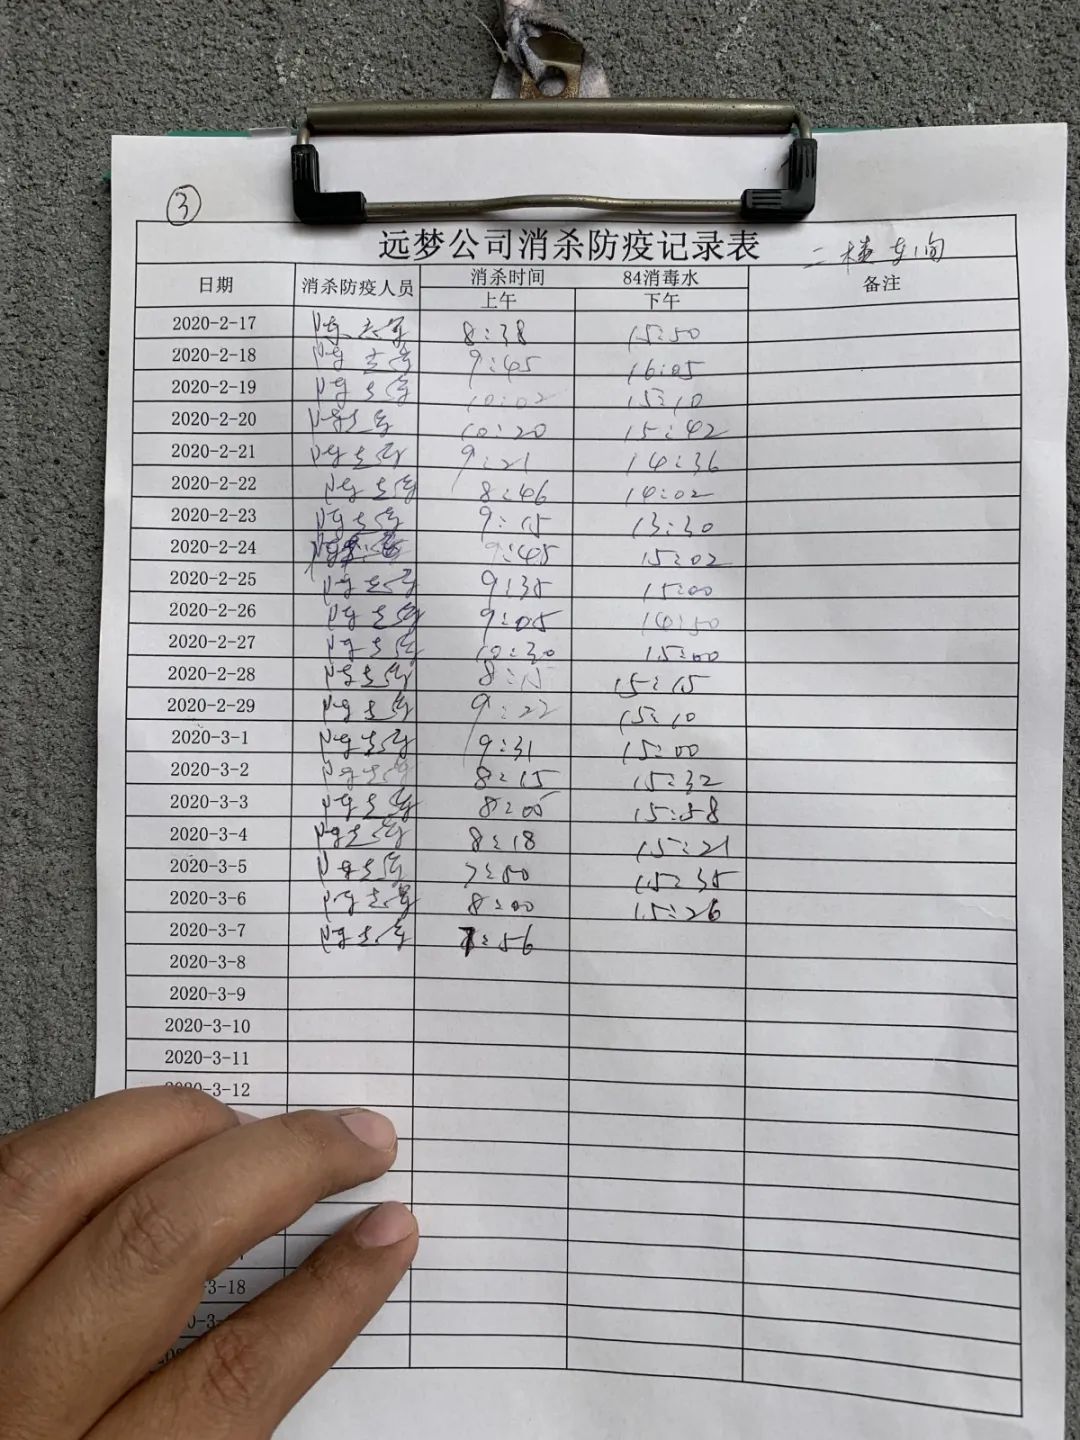 ③
远梦公司消杀防疫记录表 二楼车间
日期 消杀防疫人员 消杀时间 84消毒水 备注
上午 下午
2020-2-17 8:38 15:50
2020-2-18 9:45 16:05
2020-2-19 10:02 15:10
2020-2-20 10:20 15:42
2020-2-21 9:21 14:36
2020-2-22 8:46 14:02
2020-2-23 9:15 13:30
2020-2-24 9:45 15:02
2020-2-25 9:35 15:00
2020-2-26 9:05 14:50
2020-2-27 10:30 15:00
2020-2-28 8:15 15:15
2020-2-29 9:22 15:10
2020-3-1 9:31 15:00
2020-3-2 8:15 15:32
2020-3-3 8:00 15:58
2020-3-4 8:18 15:21
2020-3-5 7:50 15:35
2020-3-6 8:00 15:26
2020-3-7 7:56
2020-3-8
2020-3-9
2020-3-10
2020-3-11
2020-3-12
-3-18